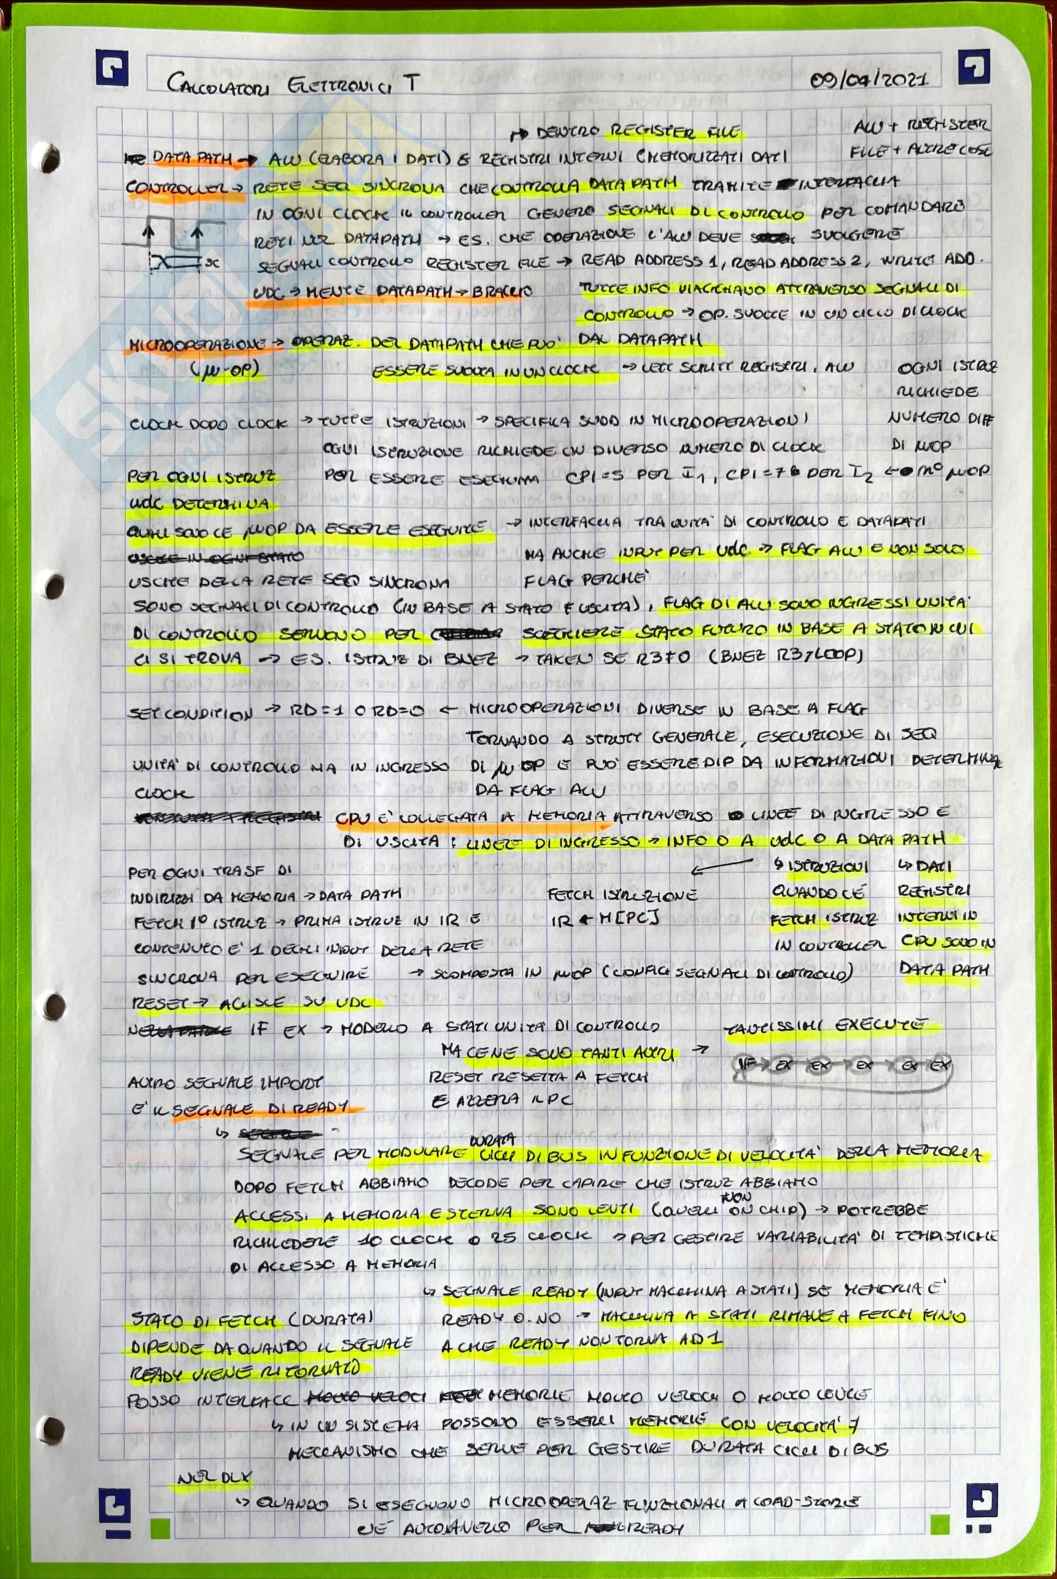 CALCOLATORI ELETTRONICI T 09/04/2021
↱ DENTRO REGISTER FILE
ALU + REGISTER
FILE + ALTRE COSE
DATA PATH → ALU (ELABORA I DATI) E REGISTRI INTERNI (MEMORIZZATI DATI
CONTROLLER → RETE SEQ SINCRONA CHE CONTROLLA DATA PATH TRAMITE INTERFACCIA
IN OGNI CLOCK IL CONTROLLER GENERO SEGNALI DI CONTROLLO PER COMANDARE
RETI NEL DATAPATH → ES. CHE OPERAZIONE L'ALU DEVE SVOLGERE
SEGNALI CONTROLLO REGISTER FILE → READ ADDRESS 1, READ ADDRESS 2, WRITE ADD.
UDC → MENTE DATAPATH → BRACCIO
TUTTE INFO VIAGGIANO ATTRAVERSO SEGNALI DI
CONTROLLO → OP. SVOLTE IN UN CICLO DI CLOCK
MICROOPERAZIONE → OPERAZ. DEL DATAPATH CHE PUO' DAL DATAPATH
(μ-OP) ESSERE SVOLTA IN UN CLOCK → LETT SCRITT REGISTRI, ALU
OGNI ISTRUZ
RICHIEDE
NUMERO DIFF
DI μOP
CLOCK DOPO CLOCK → TUTTE ISTRUZIONI → SPECIFICA SONO IN MICROOPERAZIONI
OGNI ISTRUZIONE RICHIEDE UN DIVERSO NUMERO DI CLOCK
PER ESSERE ESEGUITA CPI=5 PER I1, CPI=7 PER I2 ← n° μOP
PER OGNI ISTRUZ
UDC DETERMINA
QUALI SONO LE μOP DA ESSERE ESEGUITE → INTERFACCIA TRA UNITA' DI CONTROLLO E DATAPATH
MA ANCHE INPUT PER UDC → FLAG ALU E NON SOLO
USCITE DELLA RETE SEQ SINCRONA FLAG PERCHE'
SONO SEGNALI DI CONTROLLO (IN BASE A STATO E USCITA), FLAG DI ALU SONO INGRESSI UNITA'
DI CONTROLLO SERVONO PER SCEGLIERE STATO FUTURO IN BASE A STATO IN CUI
CI SI TROVA → ES. ISTRUZ DI BNEZ → TAKEN SE R3≠0 (BNEZ R3, LOOP)
SET CONDITION → RD=1 O RD=0 ← MICROOPERAZIONI DIVERSE IN BASE A FLAG
TORNANDO A STRUTT GENERALE, ESECUZIONE DI SEQ
UNITA' DI CONTROLLO HA IN INGRESSO DI μOP E PUO' ESSERE DIP DA INFORMAZIONI DETERMINA
CLOCK DA FLAG ALU
CPU E' COLLEGATA A MEMORIA ATTRAVERSO LINEE DI INGRESSO E
DI USCITA: LINEE DI INGRESSO → INFO O A UDC O A DATA PATH
↳ ISTRUZIONI ↳ DATI
QUANDO C'E' REGISTRI
FETCH ISTRUZ INTERNI IN
IN CONTROLLER CPU SONO IN
DATA PATH
PER OGNI TRASF DI
INDIRIZZI DA MEMORIA → DATA PATH FETCH ISTRUZIONE
FETCH 1° ISTRUZ → PRIMA ISTRUZ IN IR E IR ← M[PC]
CONTENUTO E' 1 DEGLI INPUT DELLA RETE
SINCRONA PER ESEGUIRE → SCOMPOSTA IN μOP (CONFIG SEGNALI DI CONTROLLO)
RESET → AGISCE SU UDC
IF EX → MODELLO A STATI UNITA DI CONTROLLO TANTISSIMI EXECUTE
MA CE NE SONO TANTI ALTRI →
IF → EX EX EX EX EX
RESET RESETTA A FETCH
E AZZERA IL PC
ALTRO SEGNALE IMPORT
E' IL SEGNALE DI READY
SEGNALE PER MODULARE DURATA CICLI DI BUS IN FUNZIONE DI VELOCITA' DELLA MEMORIA
DOPO FETCH ABBIAMO DECODE PER CAPIRE CHE ISTRUZ ABBIAMO
ACCESSI A MEMORIA ESTERNA SONO LENTI (QUELLI NON ON CHIP) → POTREBBE
RICHIEDERE 10 CLOCK O 25 CLOCK → PER GESTIRE VARIABILITA' DI TEMPISTICHE
DI ACCESSO A MEMORIA
↳ SEGNALE READY (INPUT MACCHINA A STATI) SE MEMORIA E'
READY O NO → MACCHINA A STATI RIMANE A FETCH FINO
A CHE READY NON TORNA AD 1
STATO DI FETCH (DURATA)
DIPENDE DA QUANDO IL SEGNALE
READY VIENE RITORNATO
POSSO INTERFACC MEMORIE MOLTO VELOCI O MOLTO LENTE
↳ IN UN SISTEMA POSSONO ESSERCI MEMORIE CON VELOCITA' ≠
MECCANISMO CHE SERVE PER GESTIRE DURATA CICLI DI BUS
NEL DLX
↳ QUANDO SI ESEGUONO MICROOPERAZ FUNZIONALI A LOAD-STORE
C'E' AUTOANELLO PER READY